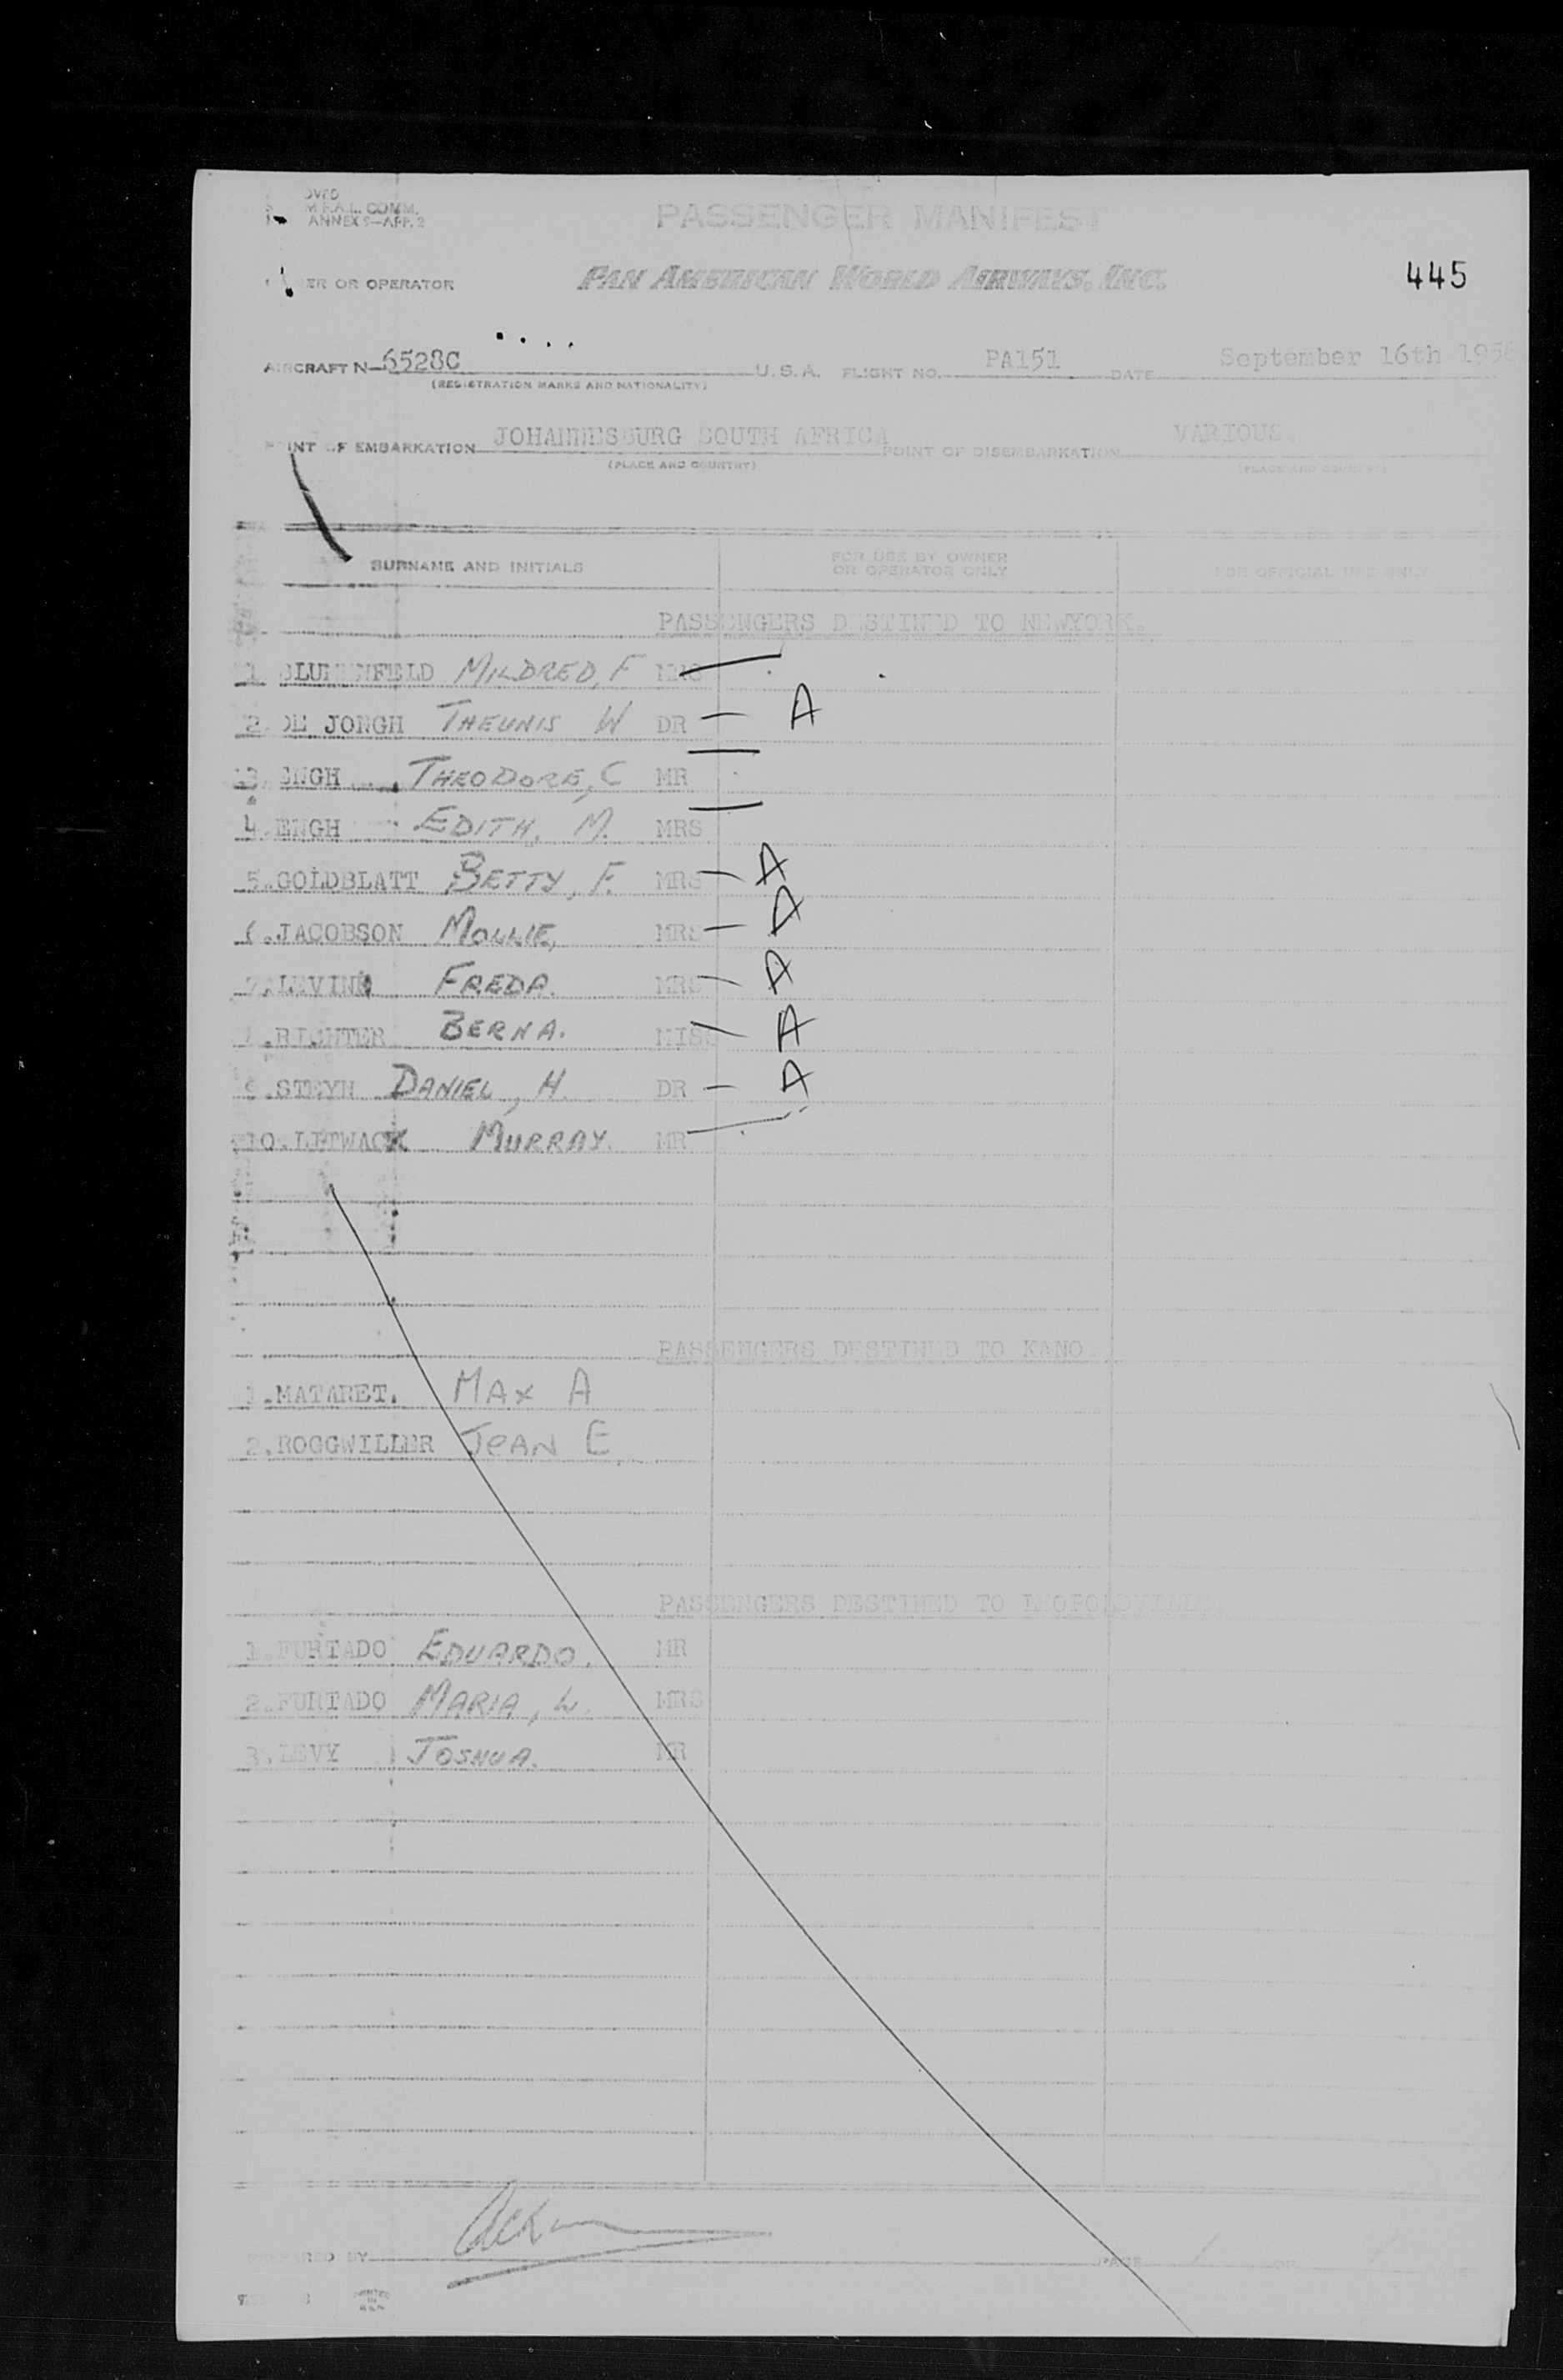 OVED
M F.A.L. COMM.
ANNEX 9—APP. 2
PASSENGER MANIFEST
ER OR OPERATOR PAN AMERICAN WORLD AIRWAYS, INC. 445
AIRCRAFT N-6528C U.S.A. FLIGHT NO. PA151 DATE September 16th 1956
(REGISTRATION MARKS AND NATIONALITY)
POINT OF EMBARKATION JOHANNESBURG SOUTH AFRICA POINT OF DISEMBARKATION VARIOUS
(PLACE AND COUNTRY) (PLACE AND COUNTRY)
SURNAME AND INITIALS FOR USE BY OWNER OR OPERATOR ONLY FOR OFFICIAL USE ONLY
PASSENGERS DESTINED TO NEWYORK.
1. BLUMENFELD MILDRED, F MRS —
2. DE JONGH THEUNIS W DR — A
3. ENGH THEODORE, C MR —
4. ENGH EDITH, M. MRS —
5. GOLDBLATT BETTY, F. MRS — A
6. JACOBSON MOLLIE, MRS — A
7. LEVINE FREDA. MRS — A
8. RICHTER BERNA. MISS — A
9. STEYN DANIEL, H. DR — A
10. LITWACK MURRAY. MR —
PASSENGERS DESTINED TO KANO
1. MATARET. MAX A
2. ROGGWILLER JEAN E.
PASSENGERS DESTINED TO LEOPOLDVILLE
1. FURTADO EDUARDO. MR
2. FURTADO MARIA, L. MRS
3. LEVY JOSHUA. MR
PREPARED BY PAGE 1 OF
PRINTED IN U.S.A.